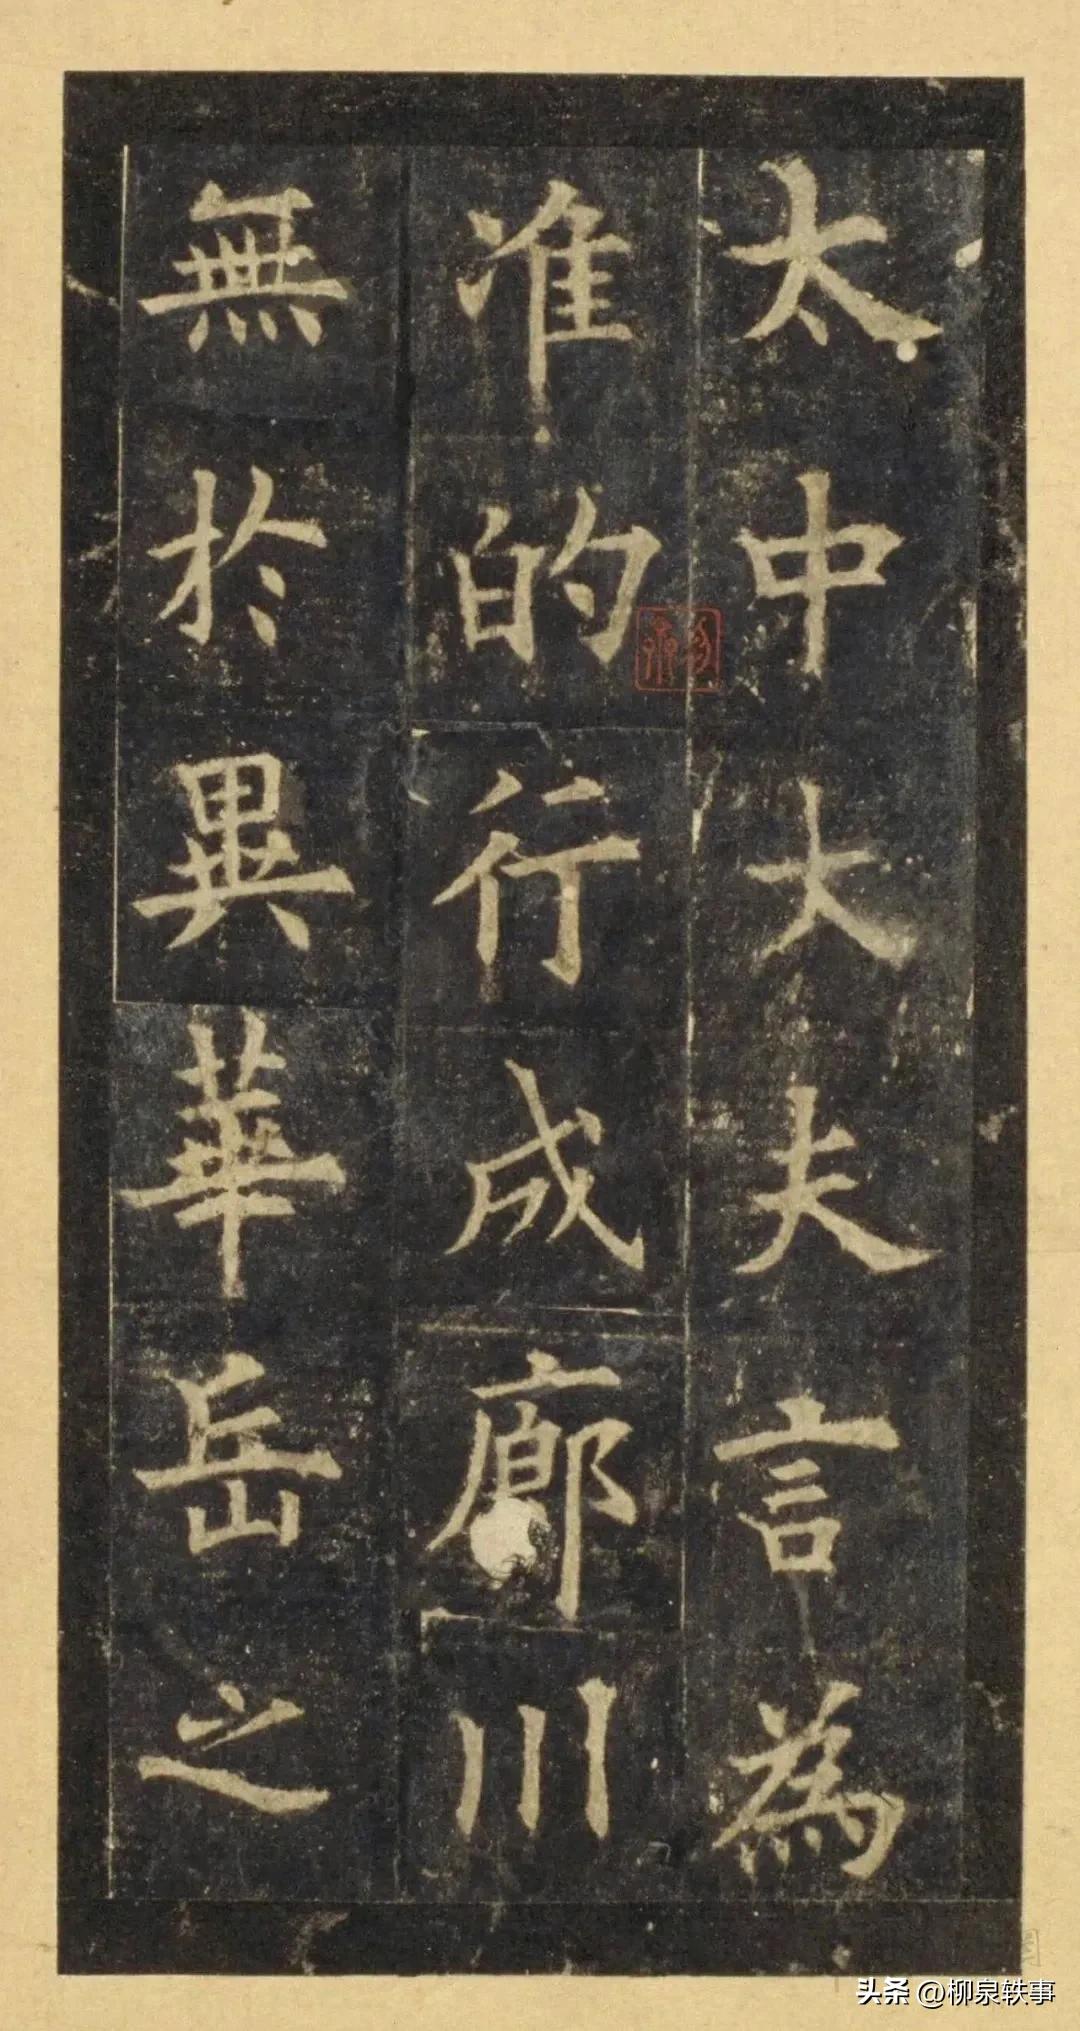 太中大夫言為
准的行成廊川
無於異華岳之
头条 @柳泉轶事